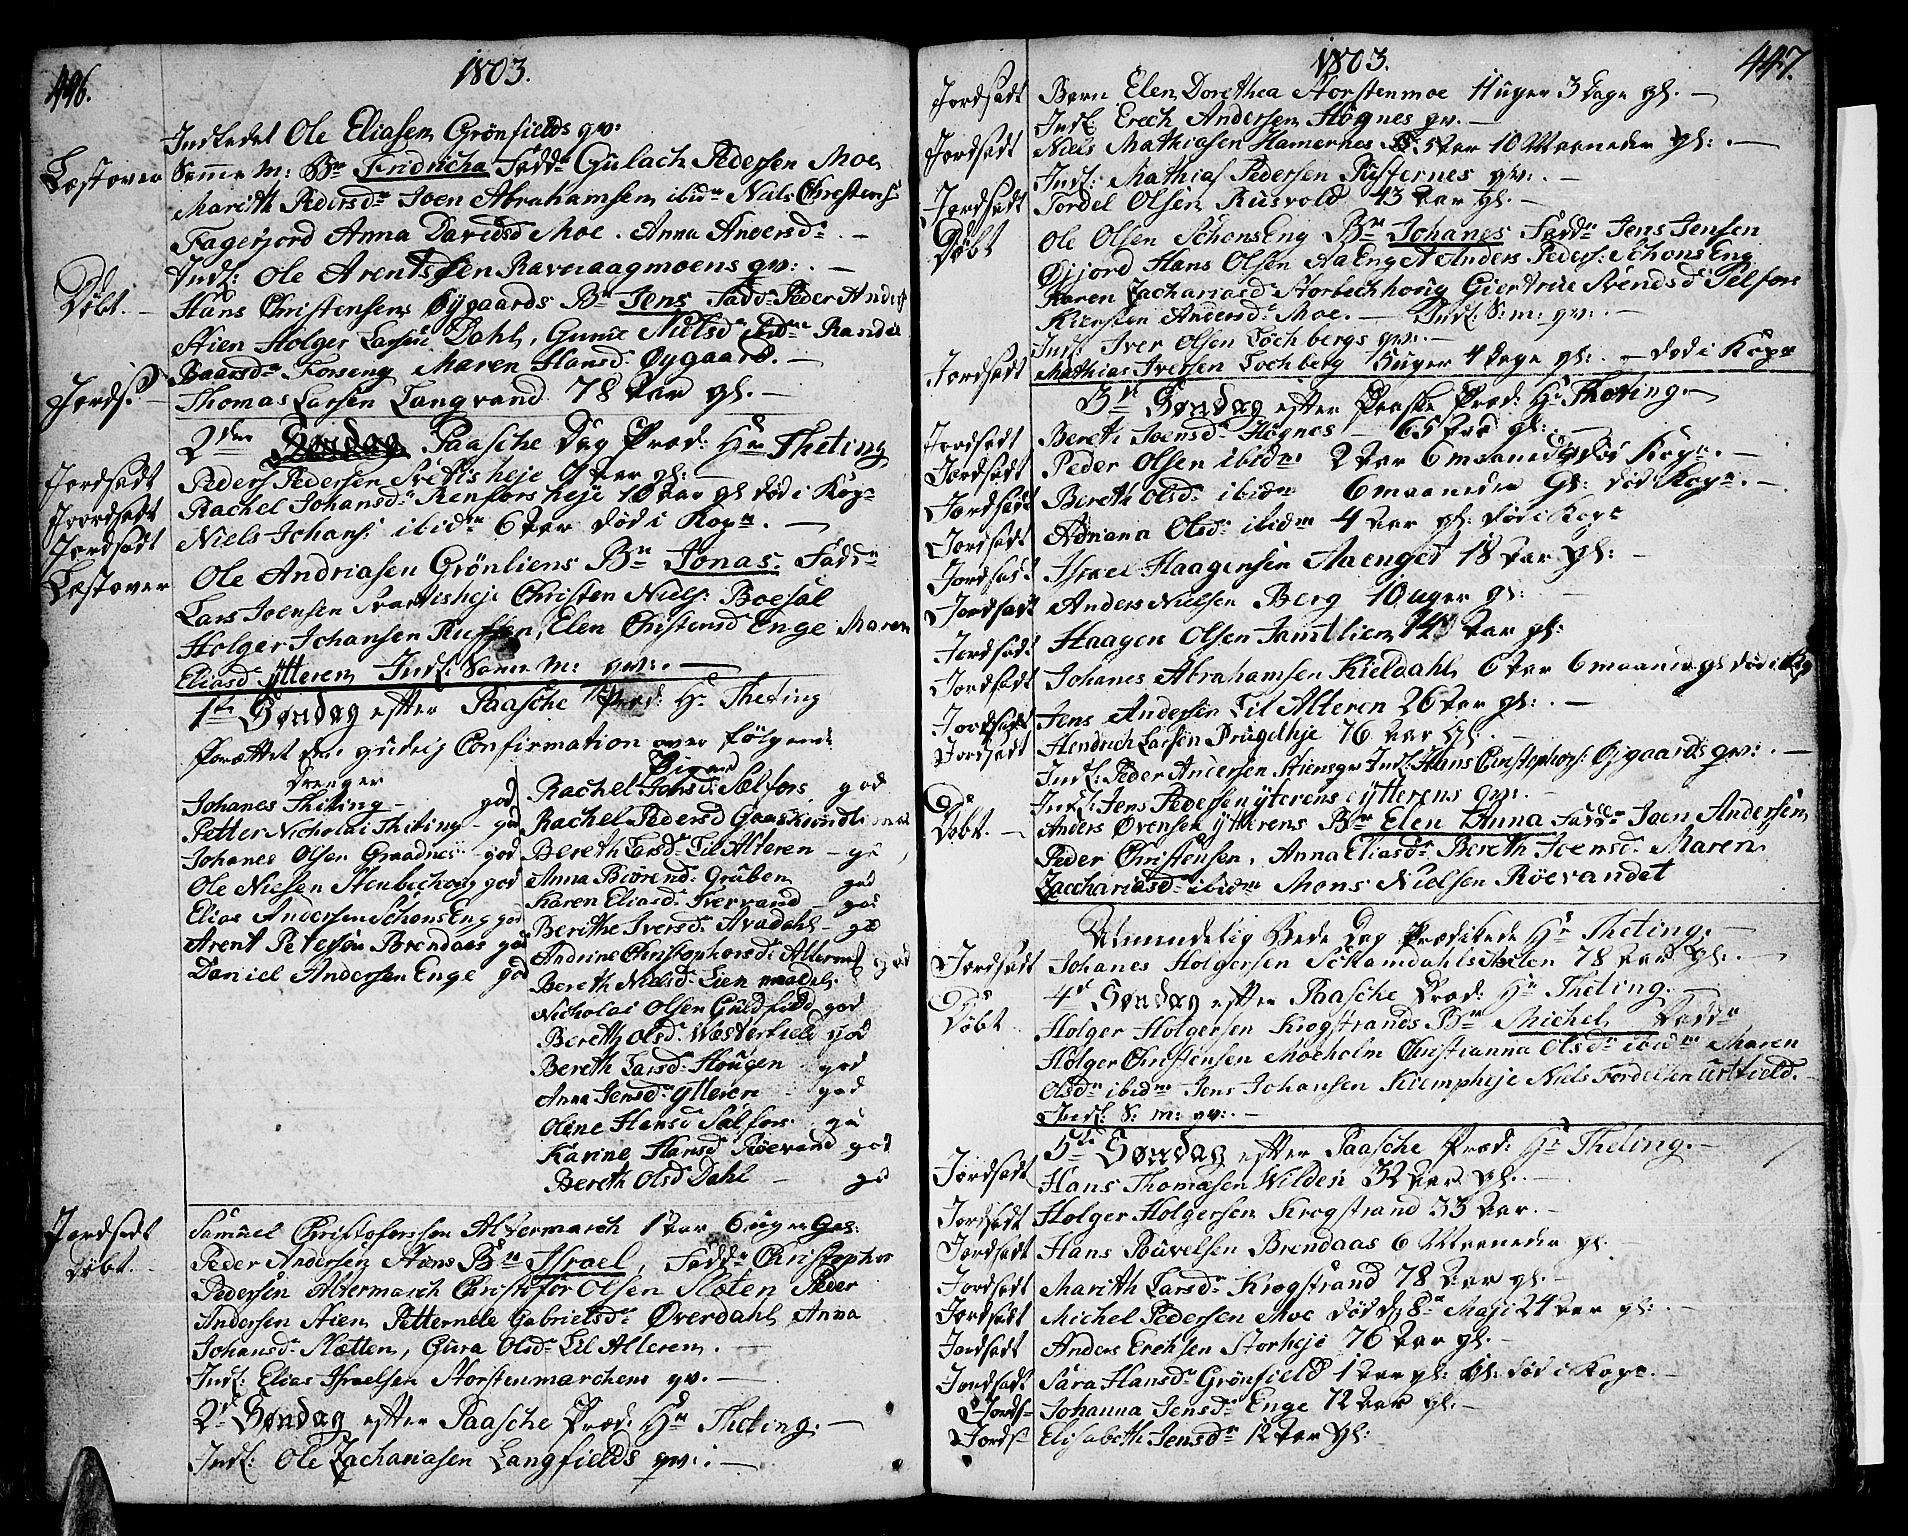 446.
1803.
Indledet Ole Eliasen Grönfields qv:
Læst over
Samme m: Bn Fridricha Fadd: Gulach Pedersen Moe
Marith Pedersd: Joen Abrahamsen ibidm Niels Christens:
Fagerjord Anna Davidsd Moe. Anna Andersd:
Indl: Ole Arentsen Ravnaagmoens qv:
Döbt.
Hans Christensen Öygaards Bn Jens Fadd: Peder Anders
Stien Holger Larsen Dahl, Gunne Nielsd ibidm Randi
Baarsd: Forseng Maren Hansd Öygaard.
Jords:
Thomas Larsen Langvand 78 Aar gl.
2den Paasche Dag Præd: Hr Theting
Jordfæst
Peder Pedersen Svetisheje Aar gl:
Jordfæst
Rachel Johansd: Renforsheje 10 Aar gl död i Kopr
Jordfæst
Niels Johans: ibidm 6 Aar död i Kopr.
Læst over
Ole Andriasen Grönliens Bn Jonas. Fadd:
Lars Joensen Svartisheje Christen Niels: Boesdl
Holger Johansen Ruffen, Elen Christensd Enge Maren
Eliasd ytteren Indl: Samme m: qv:
1ste Söndag efter Paasche Præd: Hr Theting
forættet den gudelig Confirmation over fölgende
Drenger
Johanes Theting god
Petter Nicholai Theting god
Johanes Olsen Graadnes god
Ole Nielsen Stenbechong god
Elias Andersen SchonsEng god
Arent Petersen Brendaas god
Daniel Andersen Enge god
Piger
Rachel Jansd: Selfors god
Rachel Pedersd Gaaskundlimoe
Bereth Larsd: Lil Alteren god
Anna Beorend: Gruben god
Karen Eliasd: Svervand god
Berithe Iversd: Avadahl god
Andrine Christophersd: Alterne god
Bereth Nielsd: Lien maadel:
Nicholai Olsen Guldfield god
Bereth Olsd: Westerfield god
Bereth Larsd: Hougen god
Anna Jensd: Ytteren god
Olene Hansd Selfors god
Karine Hansd Röevand god
Bereth Olsd Dahl god
Jordfæst
Samuel Christofersen Altermarch 1 Aar 6 uger Gl:
Döbt.
Peder Andersen Stiens Bn Israel, Fadd: Christopher
Pedersen Altermarch Christofor Olsen Sleten Peder
Andersen Stien Petternele Gabrielsd: Överdahl Anna
Johansd: Sletten, Gura Olsd: Lil Alteren.
Indl: Elias Israelsen Storstenmarchens qv.
2d Söndag efter Paasche Præd: Hr Theting.
Indl: Ole Zachariasen Langfields qv:
1803.
447.
Jordfæst
Barn Elen Dorethea Storstenmoe 11 uger 3 dage gl.
Indl: Erech Andersen Högnes qv.
Jordfæst
Niels Mathiasen Hamernes 5 Aar 10 Maaneder gl:
Indl: Mathias Pedersen Rusfernes qv:
Jordfæst
Tordel Olsen Rusvold 43 Aar gl.
Döbt
Ole Olsen SchonsEng Bn Johanes Fadd: Jens Jensen
Öijord Hans Olsen AaEnget Anders Peders: SchonsEng
Karen Zachariasd: Storbechhoug Giertrue Svendsd Selfors
Kiersten Andersd: Moe. Indl: S: m: qv:
Indl: Iver Olsen Lochbergs qv:
Jordfæst
Mathias Iversen Lochberg 15 uger 4 dage gl: död i Kopr
3de Söndag efter Paaske Præd: Hr Theting.
Jordfæst
Bereth Joensd: Högnes 65 Aar gl:
Jordfæst
Peder Olsen ibidm 2 Aar 6 maaneder död Kopr.
Jordfæst
Bereth Olsd: ibidm 6 maaneder Gl: död Kopr.
Jordfæst
Adriana Olsd: ibidm 4 Aar gl: död i Kopr
Jordfæst
Israel Haagensen Aaenget 18 Aar gl:
Jordfæst
Anders Nielsen Berg 10 uger gl:
Jordfæst
Haagen Olsen Jamtlien 14 Aar gl:
Jordfæst
Johanes Abrahamsen Kieldahl 6 Aar 6 maaneder gl död i Kop
Jordfæst
Jens Andersen Lil Alteren 26 Aar gl:
Jordfæst
Hendrich Larsen Prugelheje 76 Aar gl.
Indl: Peder Andersen Stiens qv Indl: Hans Christophers: Öjgaards qv:
Indl: Jens Pedersen ytterens ytterens qv:
Döbt.
Anders Övensen ytterens Bn Elen Anna Fadd: Joen Andersen
Peder Christensen, Anna Eliasd: Bereth Joensd: Maren
Zacchariasd: ibidm Mons Nielsen Röevandet
Almindelig Bede Dag Prædikede Hr Theting.
Jordfæst
Johanes Holgersen Sckamdahls 78 Aar gl:
4de Söndag efter Paasche Præd: Hr Theting.
Döbt
Holger Holgersen Krogstrands Bn Michel Fadd:
Holger Christensen Moeholm Christianna Olsd: ibidm Maren
Olsd: ibidm Jens Johansen Kiempheje Niels Tordelsen Urtfield.
Indl: S: m: qv:
5te Söndag efter Paasche Præd: Hr Theting.
Jordfæst
Hans Thomæsen Wilden 32 Aar gl.
Jordfæst
Holger Holgersen Krogstrand 33 Aar.
Jordfæst
Hans Pouvelsen Brendaas 6 Maaneder gl.
Jordfæst
Marith Larsd: Krogstrand 78 Aar gl.
Jordfæst
Michel Pedersen Moe död d 8de Maji 24 Aar gl:
Jordfæst
Anders Erechsen Storheje 76 Aar gl.
Jordfæst
Sara Hansd: Grönfield 1 Aar gl: död i Kopr.
Jords:
Johanna Jensd: Enge 12 Aar gl.
Jords:
Elisabeth Jensd: 12 Aar gl: